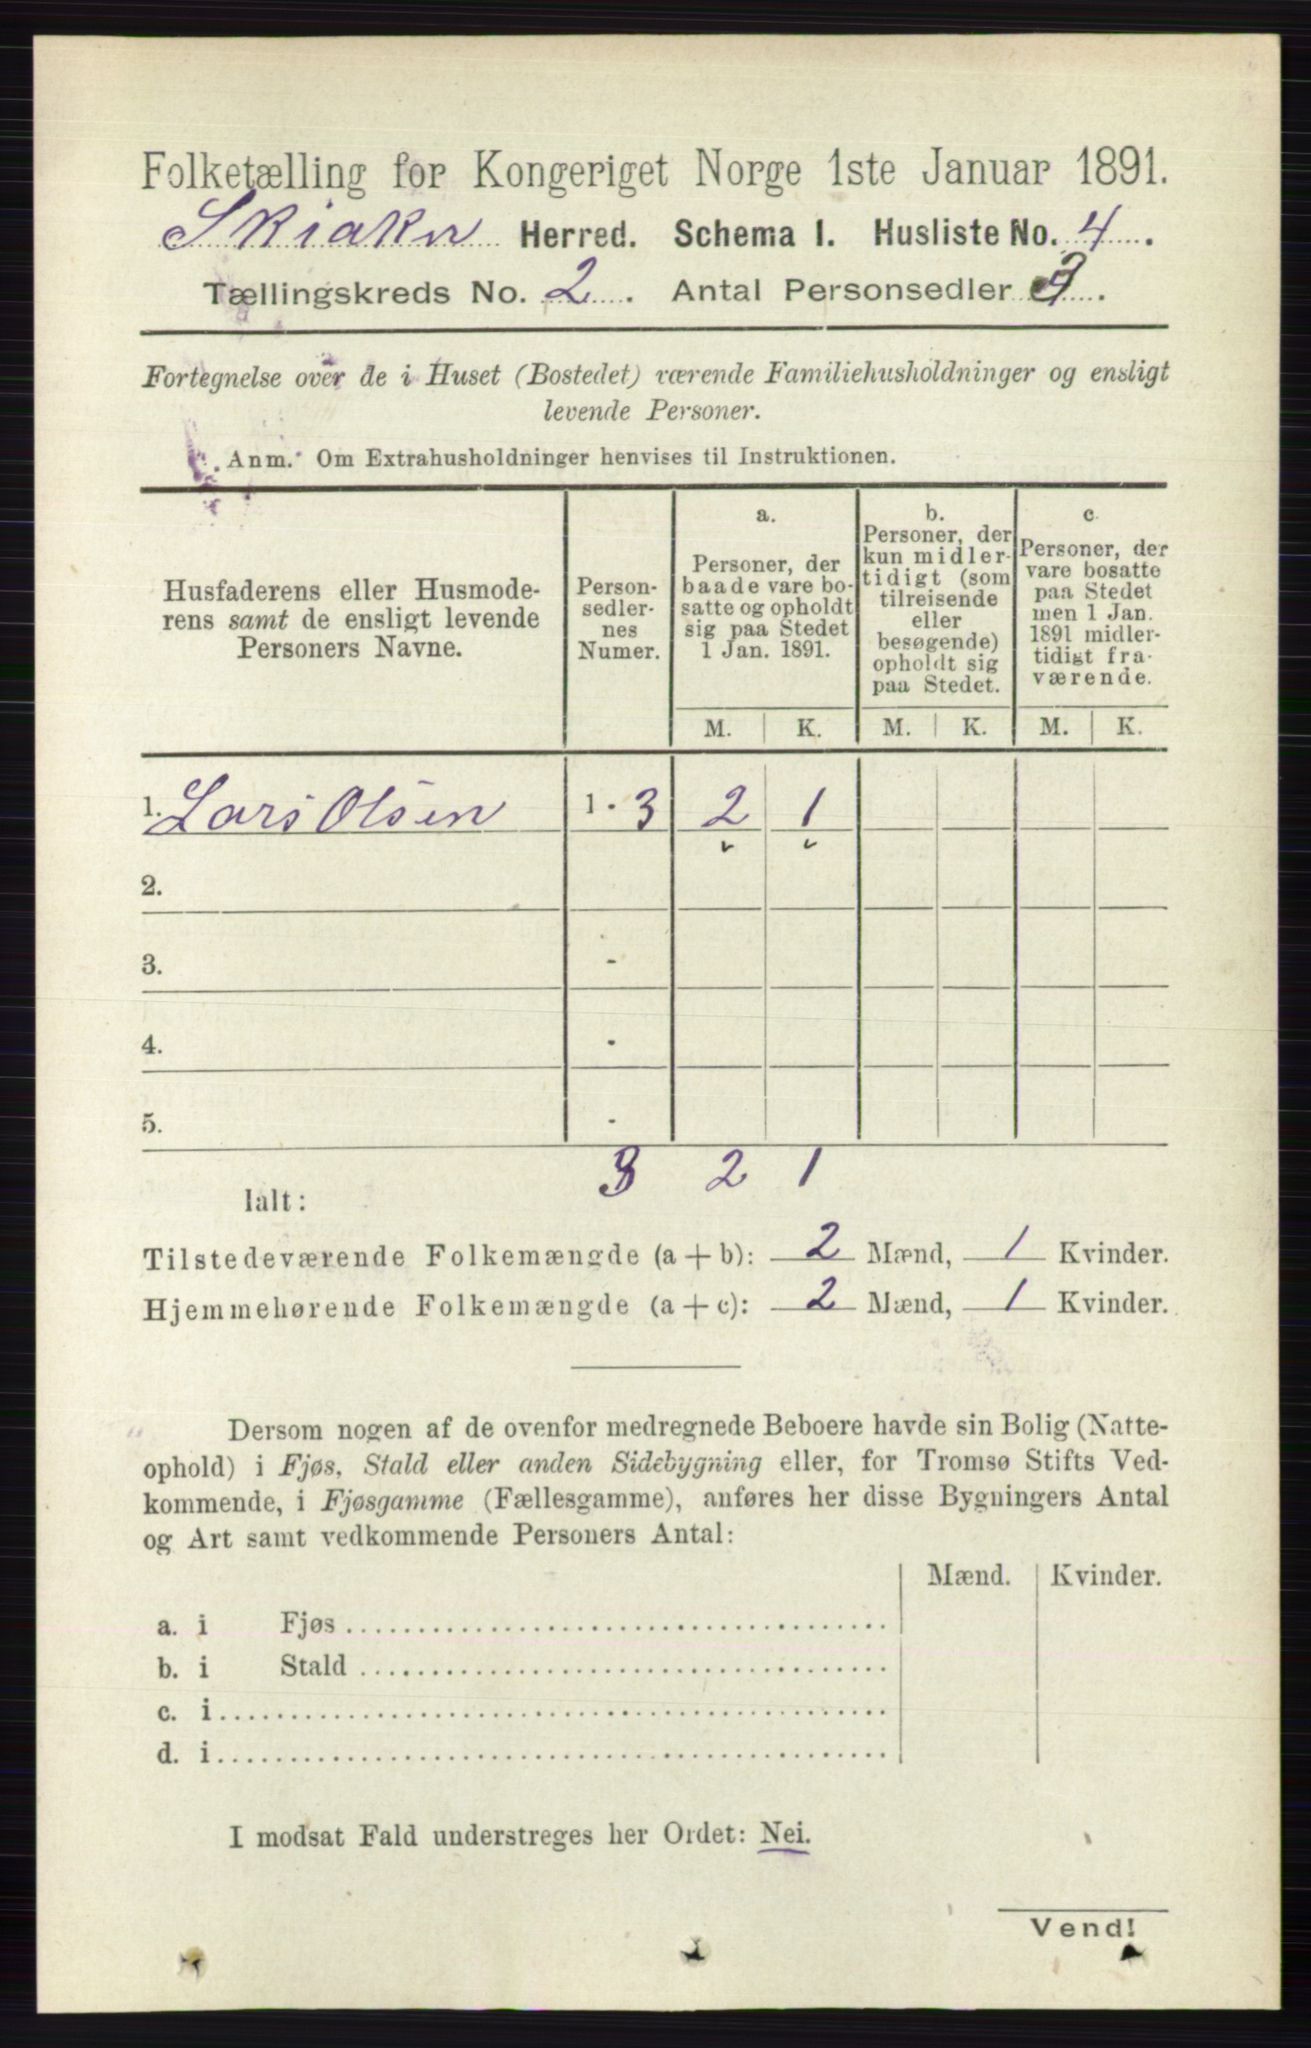 Folketælling for Kongeriget Norge 1ste Januar 1891.
Skiaker Herred. Schema I. Husliste No. 4.
Tællingskreds No. 2. Antal Personsedler 3.
Fortegnelse over de i Huset (Bostedet) værende Familiehusholdninger og ensligt
levende Personer.
Anm. Om Extrahusholdninger henvises til Instruktionen.
Husfaderens eller Husmode-
rens samt de ensligt levende
Personers Navne.
Person-
sedler-
nes
Numer.
a.
Personer, der
baade vare bo-
satte og opholdt
sig paa Stedet
1 Jan. 1891.
b.
Personer, der
kun midler-
tidigt (som
tilreisende
eller
besøgende)
opholdt sig
paa Stedet.
c.
Personer, der
vare bosatte
paa Stedet
men 1 Jan.
1891 midler-
tidigt fra-
værende.
M. K. M. K. M. K.
1. Lars Olsen 1 - 3 2 1
2.
3. -
4. -
5. -
3 2 1
Ialt:
Tilstedeværende Folkemængde (a + b): 2 Mænd, 1 Kvinder.
Hjemmehørende Folkemængde (a + c): 2 Mænd, 1 Kvinder.
Dersom nogen af de ovenfor medregnede Beboere havde sin Bolig (Natte-
ophold) i Fjøs, Stald eller anden Sidebygning eller, for Tromsø Stifts Ved-
kommende, i Fjøsgamme (Fællesgamme), anføres her disse Bygningers Antal
og Art samt vedkommende Personers Antal:
Mænd. Kvinder.
a. i Fjøs
b. i Stald
c. i
d. i
I modsat Fald understreges her Ordet: Nei.
Vend!